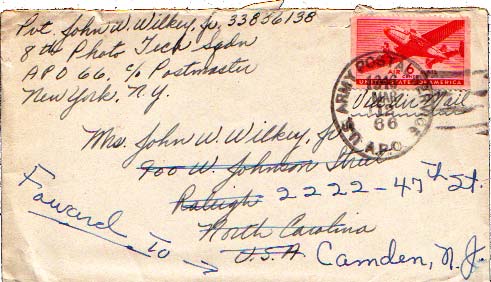 Pvt. John W. Wilkey, Jr, 33836138
8th Photo Tech Sqdn
APO 66, c/o Postmaster
New York, N.Y.
UNITED STATES OF AMERICA
Via Air Mail
U.S. ARMY POSTAL SERVICE
MAR
12
66
A.P.O.
Mrs. John W. Wilkey, Jr.
900 W. Johnson Street
Raleigh 2222-47th St.
North Carolina
U.S.A Camden, N.J.
Foward To